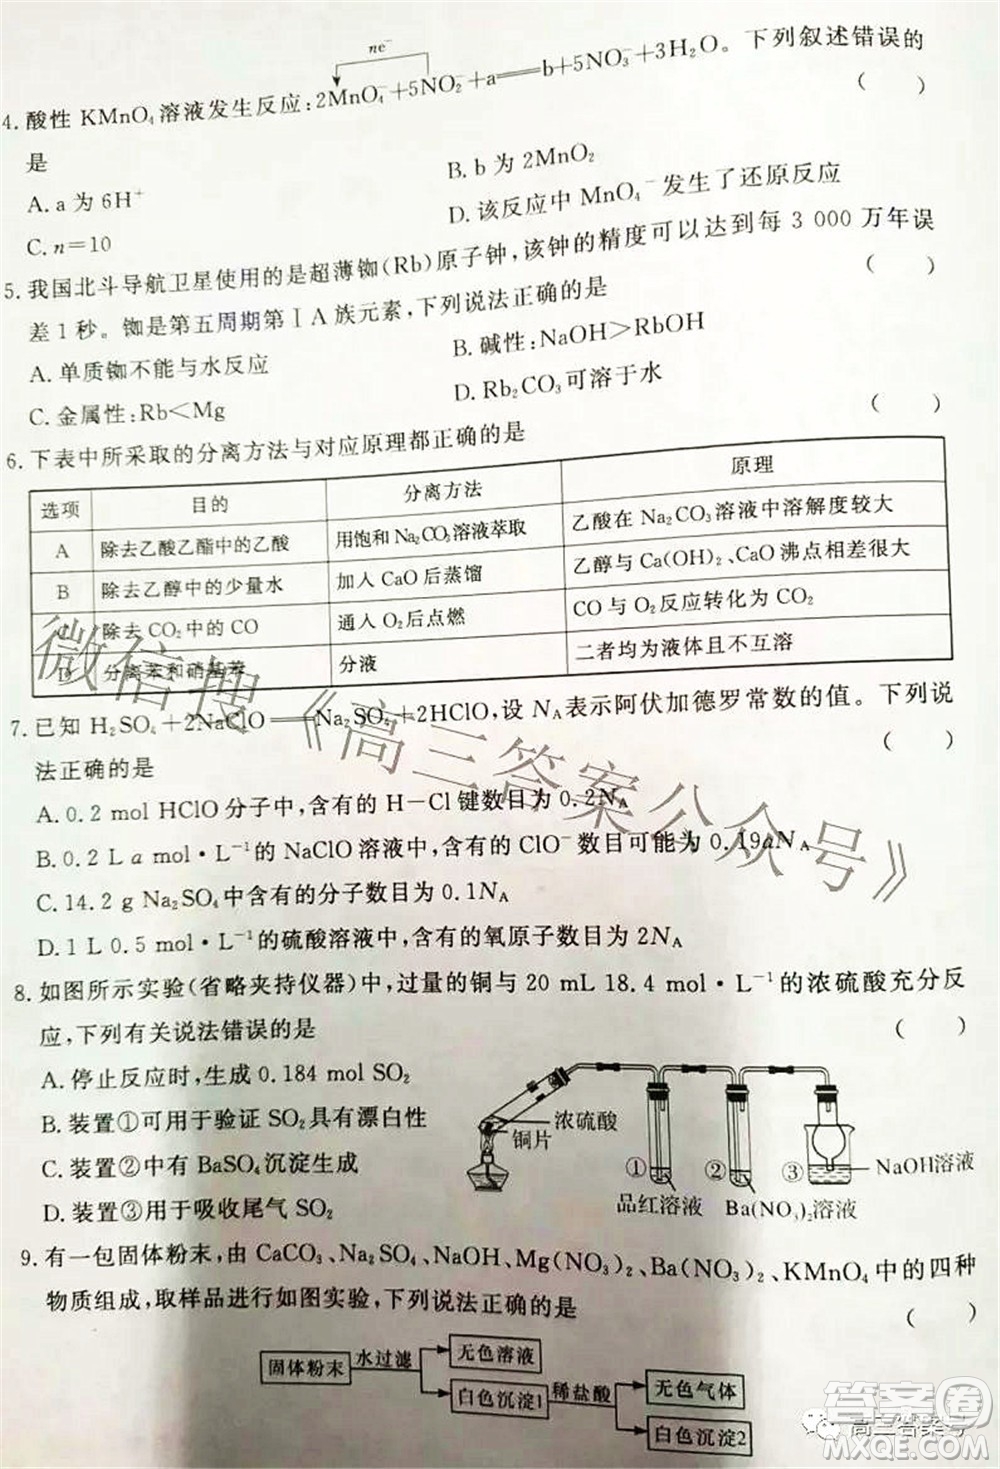 ne⁻
4. 酸性 KMnO₄ 溶液发生反应:2MnO₄⁻+5NO₂⁻+a══b+5NO₃⁻+3H₂O。下列叙述错误的
是 ( )
A. a 为 6H⁺ B. b 为 2MnO₂
C. n=10 D. 该反应中 MnO₄⁻ 发生了还原反应
5. 我国北斗导航卫星使用的是超薄铷(Rb)原子钟,该钟的精度可以达到每 3 000 万年误
差 1 秒。铷是第五周期第ⅠA 族元素,下列说法正确的是 ( )
A. 单质铷不能与水反应 B. 碱性:NaOH>RbOH
C. 金属性:Rb<Mg D. Rb₂CO₃ 可溶于水
6. 下表中所采取的分离方法与对应原理都正确的是 ( )
选项 目的 分离方法 原理
A 除去乙酸乙酯中的乙酸 用饱和 Na₂CO₃ 溶液萃取 乙酸在 Na₂CO₃ 溶液中溶解度较大
B 除去乙醇中的少量水 加入 CaO 后蒸馏 乙醇与 Ca(OH)₂、CaO 沸点相差很大
C 除去 CO₂ 中的 CO 通入 O₂ 后点燃 CO 与 O₂ 反应转化为 CO₂
D 分离苯和硝基苯 分液 二者均为液体且不互溶
7. 已知 H₂SO₄+2NaClO══Na₂SO₄+2HClO,设 N_A 表示阿伏加德罗常数的值。下列说
法正确的是 ( )
A. 0.2 mol HClO 分子中,含有的 H-Cl 键数目为 0.2N_A
B. 0.2 L a mol·L⁻¹ 的 NaClO 溶液中,含有的 ClO⁻ 数目可能为 0.19aN_A
C. 14.2 g Na₂SO₄ 中含有的分子数目为 0.1N_A
D. 1 L 0.5 mol·L⁻¹ 的硫酸溶液中,含有的氧原子数目为 2N_A
8. 如图所示实验(省略夹持仪器)中,过量的铜与 20 mL 18.4 mol·L⁻¹ 的浓硫酸充分反
应,下列有关说法错误的是 ( )
A. 停止反应时,生成 0.184 mol SO₂
B. 装置①可用于验证 SO₂ 具有漂白性
C. 装置②中有 BaSO₄ 沉淀生成
D. 装置③用于吸收尾气 SO₂
浓硫酸
铜片
① ② ③ NaOH 溶液
品红溶液 Ba(NO₃)₂溶液
9. 有一包固体粉末,由 CaCO₃、Na₂SO₄、NaOH、Mg(NO₃)₂、Ba(NO₃)₂、KMnO₄ 中的四种
物质组成,取样品进行如图实验,下列说法正确的是 ( )
固体粉末 水过滤 无色溶液
白色沉淀1 稀盐酸 无色气体
白色沉淀2
微信搜《高三答案公众号》
高三答案号
答案圈
MXQE.COM